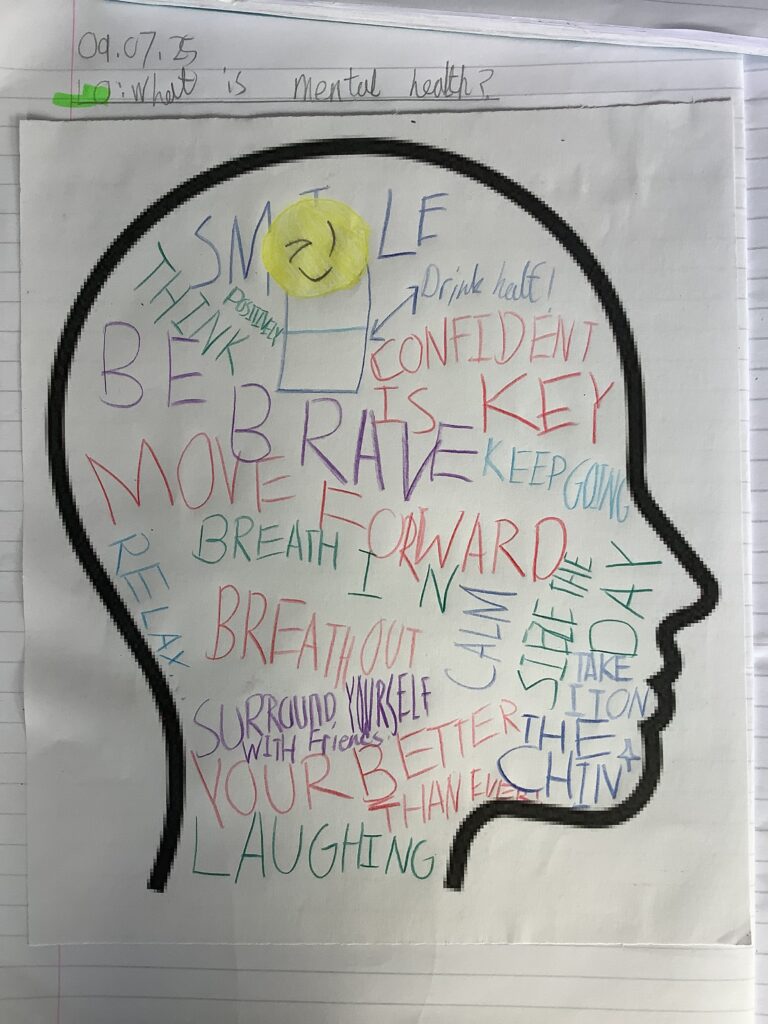 09.07.25
LO: What is mental health?
SMILE
THINK
POSITIVELY
Drink half!
CONFIDENT
IS KEY
BE
BRAVE
KEEP GOING
MOVE
FORWARD
BREATH
IN
RELAX
BREATH OUT
CALM
SIEZE THE
DAY
TAKE
IT ON
THE
CHIN
SURROUND YOURSELF
WITH Friends
YOUR BETTER
THAN EVER
LAUGHING